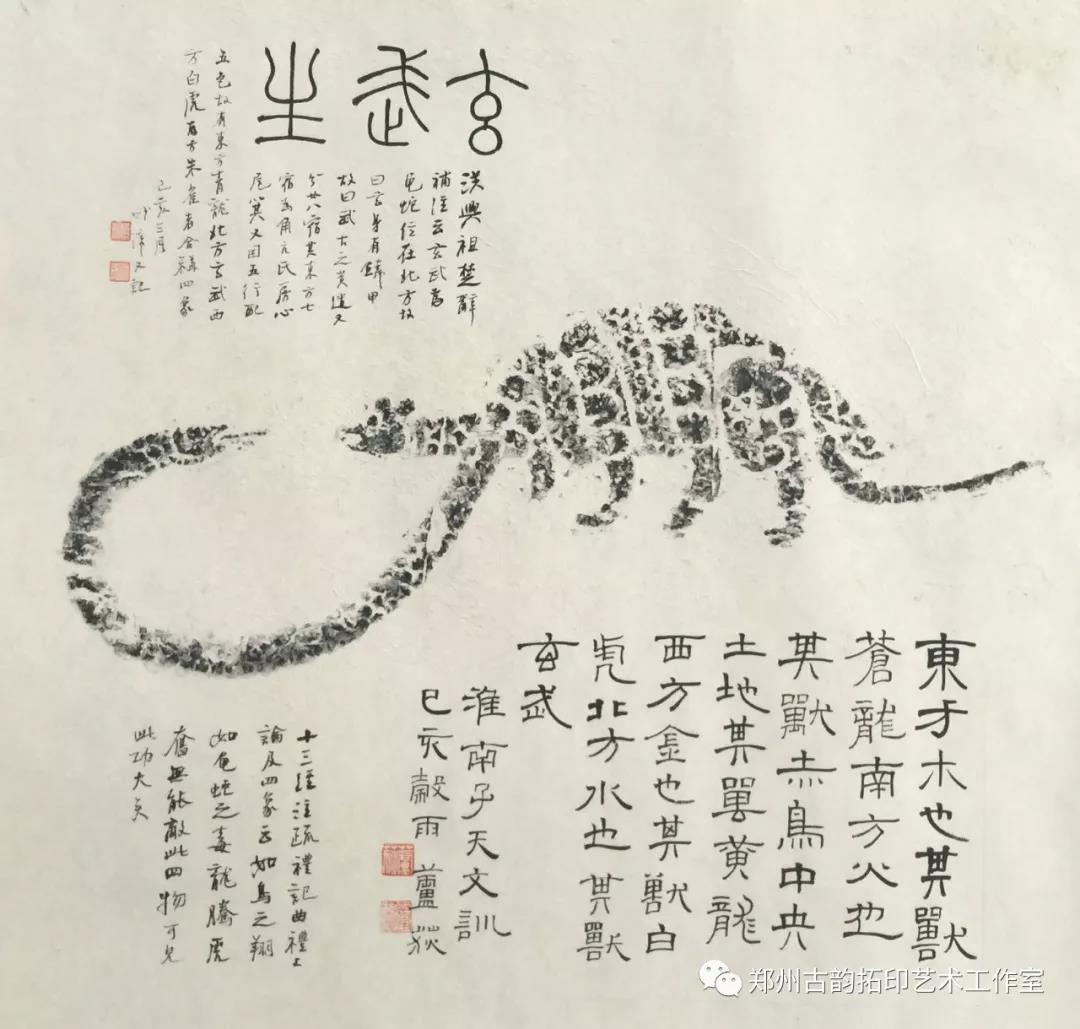 玄武生
洪興祖楚辭
補注云玄武為
龜蛇位在北方故
曰玄身有鱗甲
故曰武古之黃道又
分廿八宿其東方七
宿為角亢氐房心
尾箕又因五行配
五色故有東方青龍北方玄武西
方白虎南方朱雀者合稱四象
己亥三月
又記
東方木也其獸
蒼龍南方火也
其獸赤鳥中央
土地其單黃龍
西方金也其獸白
虎北方水也其獸
玄武
淮南子天文訓
己亥穀雨 蘆荻
十三經注疏禮記曲禮上
論及四象云如鳥之翔
如龜蛇之毒龍騰虎
奮無能敵此四物可見
此功大矣
郑州古韵拓印艺术工作室